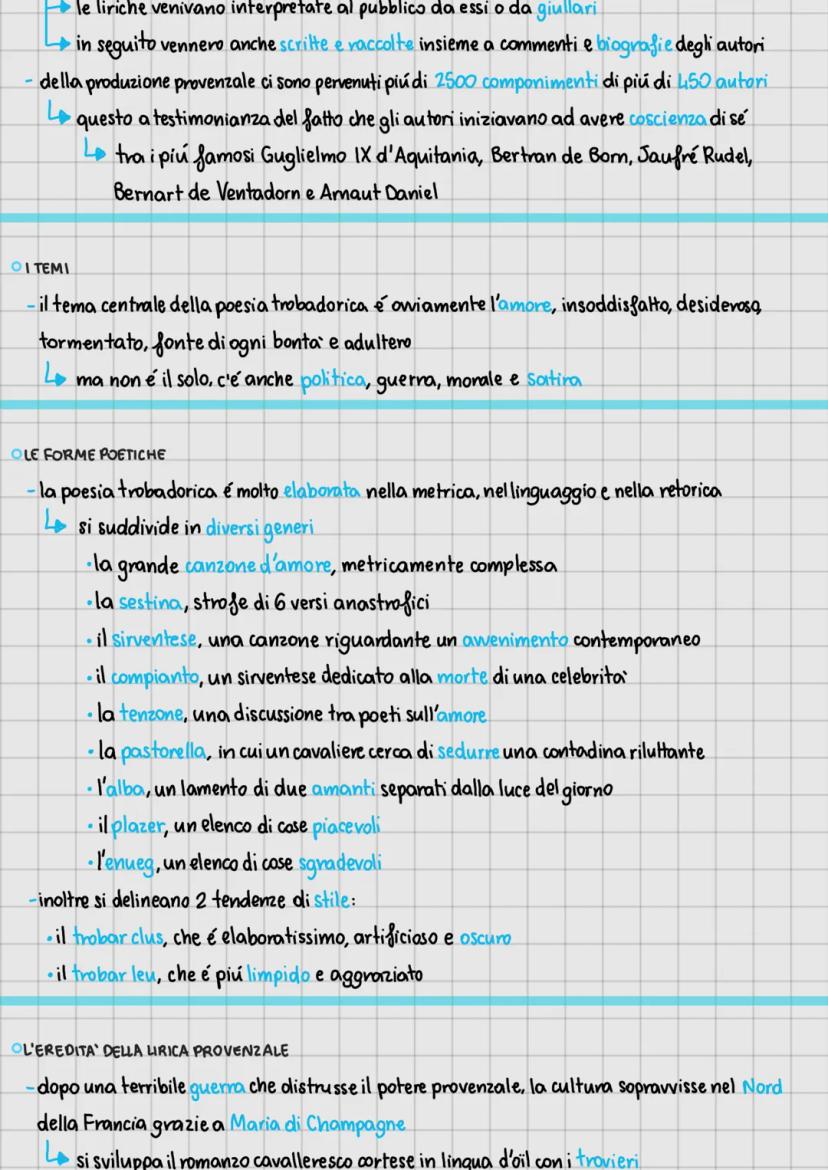 le liriche venivano interpretate al pubblico da essi o da giullari
in seguito vennero anche scritte e raccolte insieme a commenti e biografie degli autori
- della produzione provenzale ci sono pervenuti piú di 2500 componimenti di piú di 450 autori
questo a testimonianza del fatto che gli autori iniziavano ad avere coscienza di sé
tra i piú famosi Guglielmo IX d'Aquitania, Bertran de Born, Jaufré Rudel,
Bernart de Ventadorn e Arnaut Daniel
I TEMI
- il tema centrale della poesia trobadorica é ovviamente l'amore, insoddisfatto, desideroso,
tormentato, fonte di ogni bonta` e adultero
ma non é il solo, c'é anche politica, guerra, morale e satira
LE FORME POETICHE
- la poesia trobadorica é molto elaborata nella metrica, nel linguaggio e nella retorica
si suddivide in diversi generi
• la grande canzone d'amore, metricamente complessa
• la sestina, strofe di 6 versi anastrofici
• il sirventese, una canzone riguardante un avvenimento contemporaneo
• il compianto, un sirventese dedicato alla morte di una celebrita`
• la tenzone, una discussione tra poeti sull'amore
• la pastorella, in cui un cavaliere cerca di sedurre una contadina riluttante
• l'alba, un lamento di due amanti separati dalla luce del giorno
• il plazer, un elenco di cose piacevoli
• l'enueg, un elenco di cose sgradevoli
- inoltre si delineano 2 tendenze di stile:
• il trobar clus, che é elaboratissimo, artificioso e oscuro
• il trobar leu, che é piú limpido e aggraziato
L'EREDITA` DELLA LIRICA PROVENZALE
- dopo una terribile guerra che distrusse il potere provenzale, la cultura sopravvisse nel Nord
della Francia grazie a Maria di Champagne
si sviluppa il romanzo cavalleresco cortese in lingua d'oïl con i trovieri